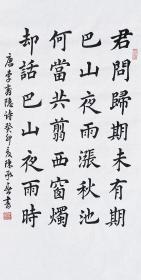 君問歸期未有期
巴山夜雨漲秋池
何當共剪西窗燭
却話巴山夜雨時
唐李商隱詩癸卯夏陳
書